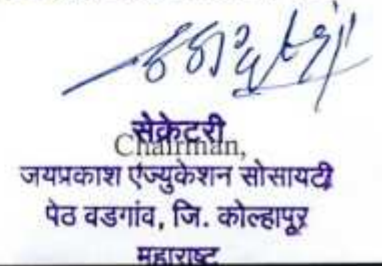 सेक्रेटरी
Chairman,
जयप्रकाश एज्युकेशन सोसायटी
पेठ वडगांव, जि. कोल्हापूर
महाराष्ट